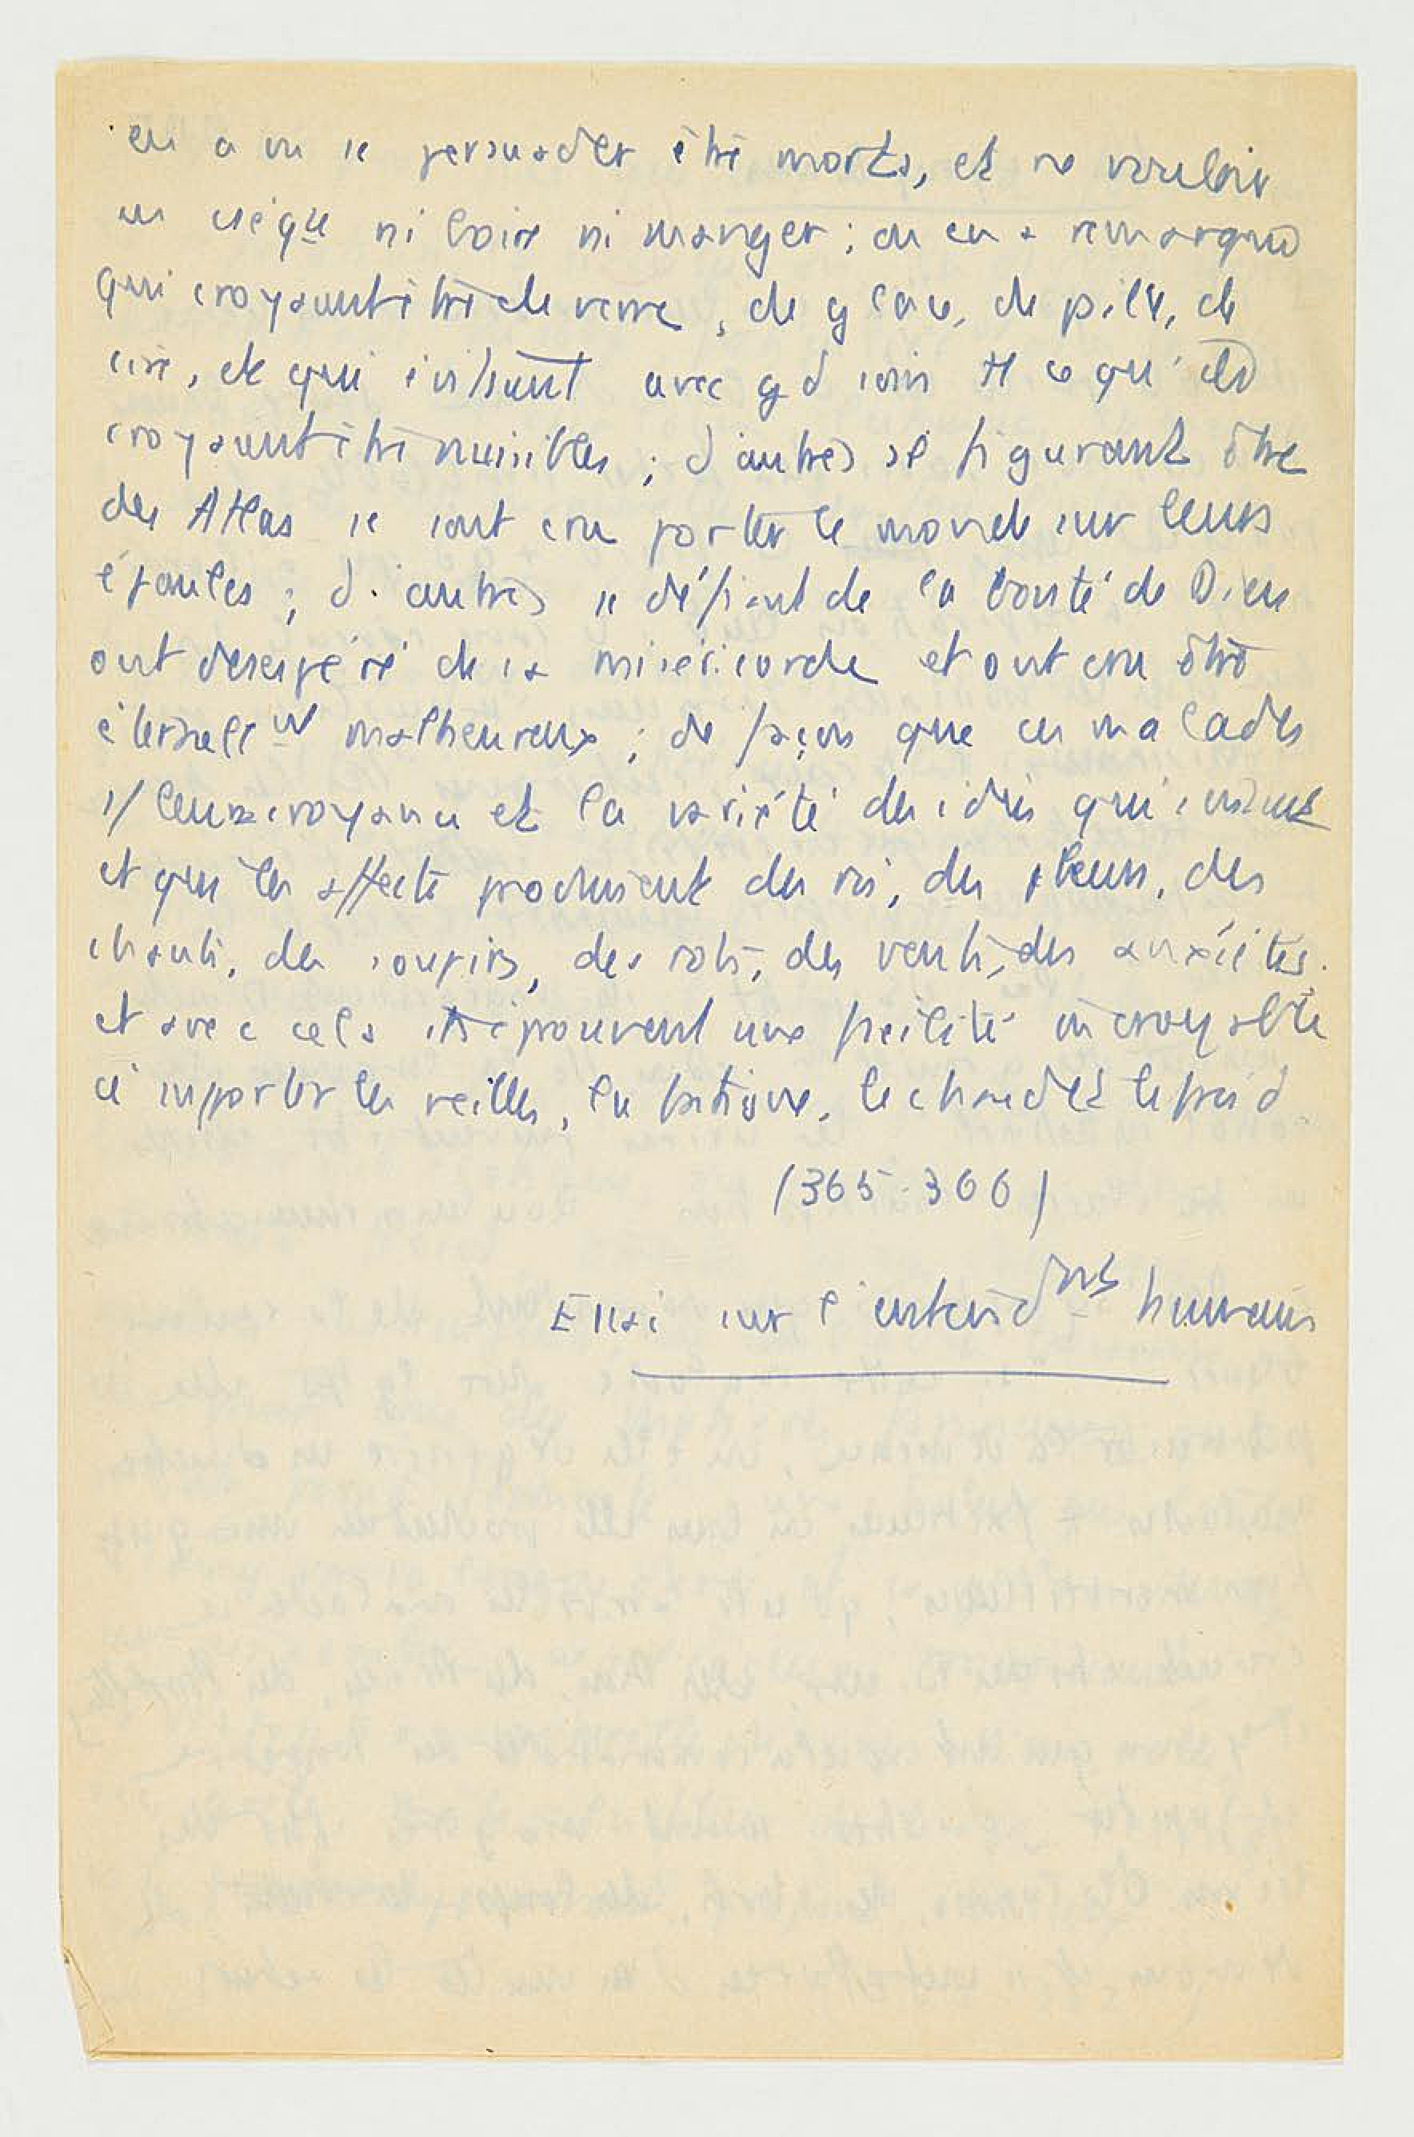 en a vu se persuader être morts, et ne vouloir
en cséq^u^e ni boire ni manger ; on en a remarqué
qui croyaient être de verre, de glace, de
cire, et qui évitaient avec gd soin tt ce qu'ils
croyaient être nuisibles ; d'autres se figurant être
des Atlas se sont cru porter le monde sur leurs
épaules ; d'autres se défiant de la bonté de Dieu
ont désespéré de sa miséricorde et ont cru être
éternell^nt^ malheureux ; de façon que ces malades
s/ leurs croyances et la variété des idées qui
et qui les affecte produisent des ris, des pleurs, des
chants, des soupirs, des rots, des vents, des anxiétés.
et avec cela ils éprouvent une facilité incroyable
à supporter les veilles, la fatigue, le chaud et le froid.
(365-366)
Essai sur l'entend^mts^ humain